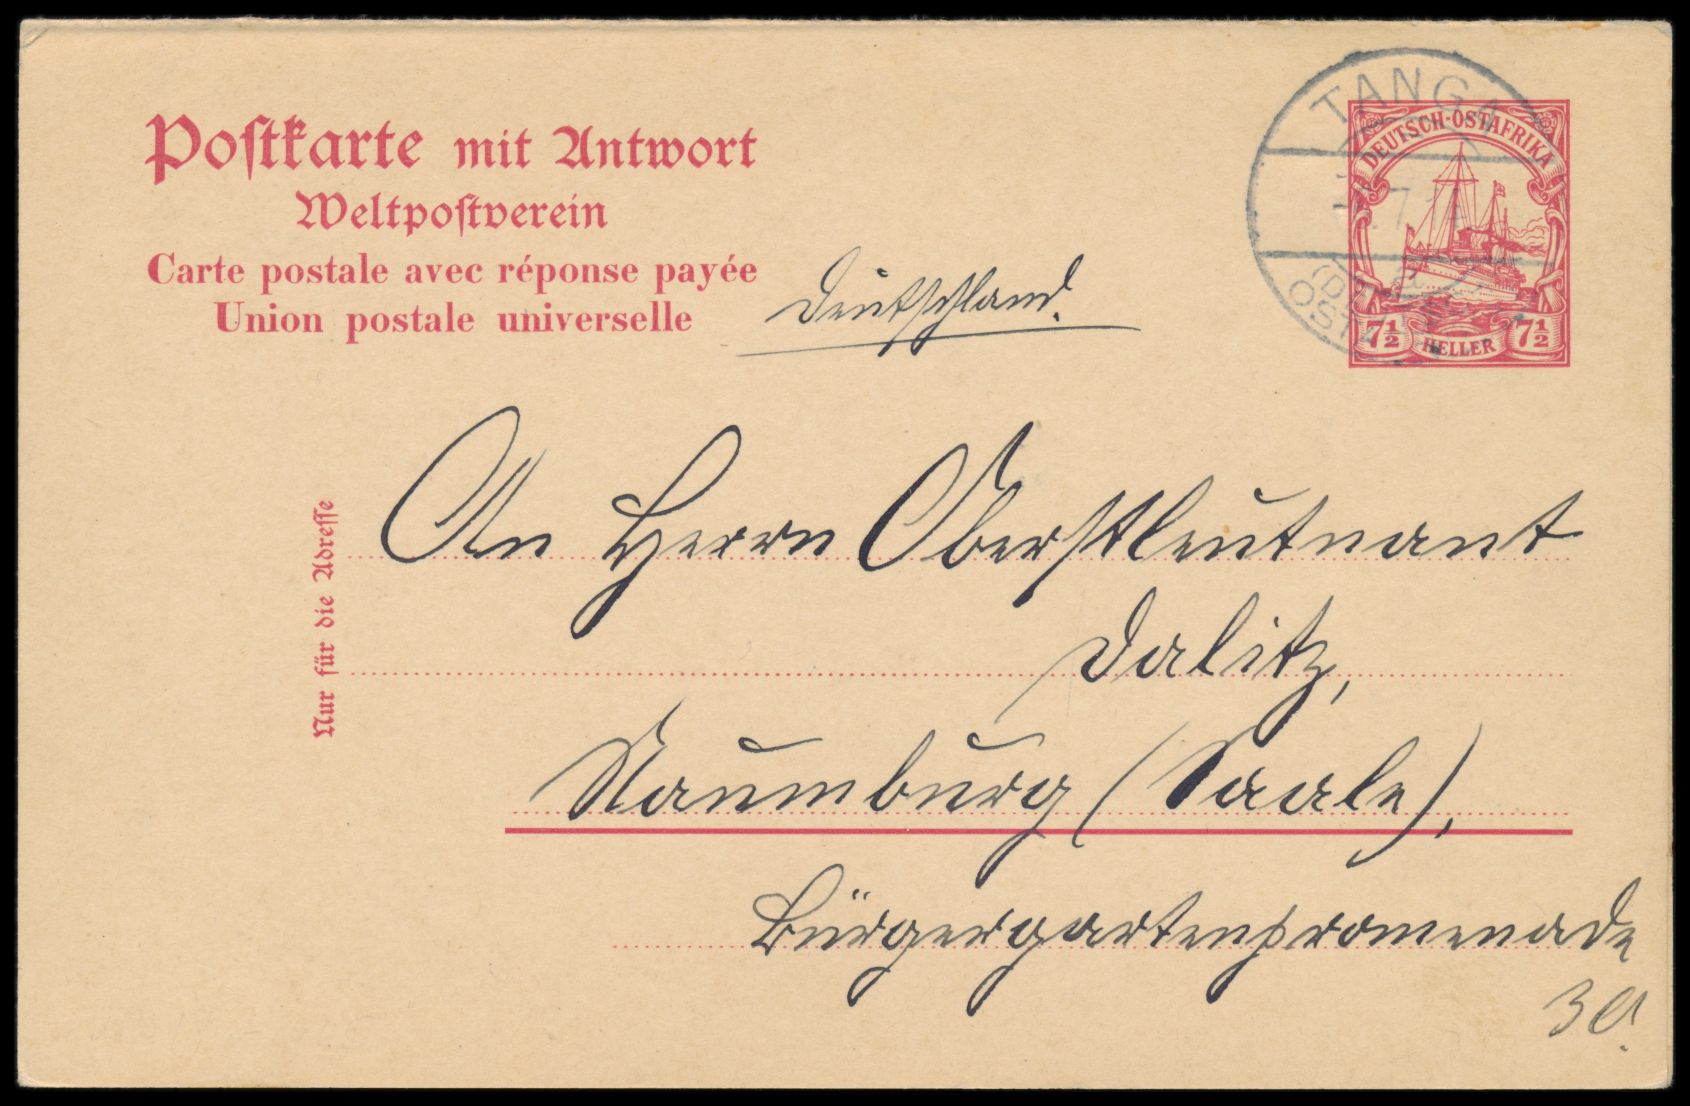 Postkarte mit Antwort
Weltpostverein
Carte postale avec réponse payée
Union postale universelle
Deutschland.
TANGA
DEUTSCH-OSTAFRIKA
7½ HELLER 7½
Nur für die Adresse
An Herrn Oberstleutnant
Dalitz,
Naumburg (Saale),
Bürgergartenpromenade